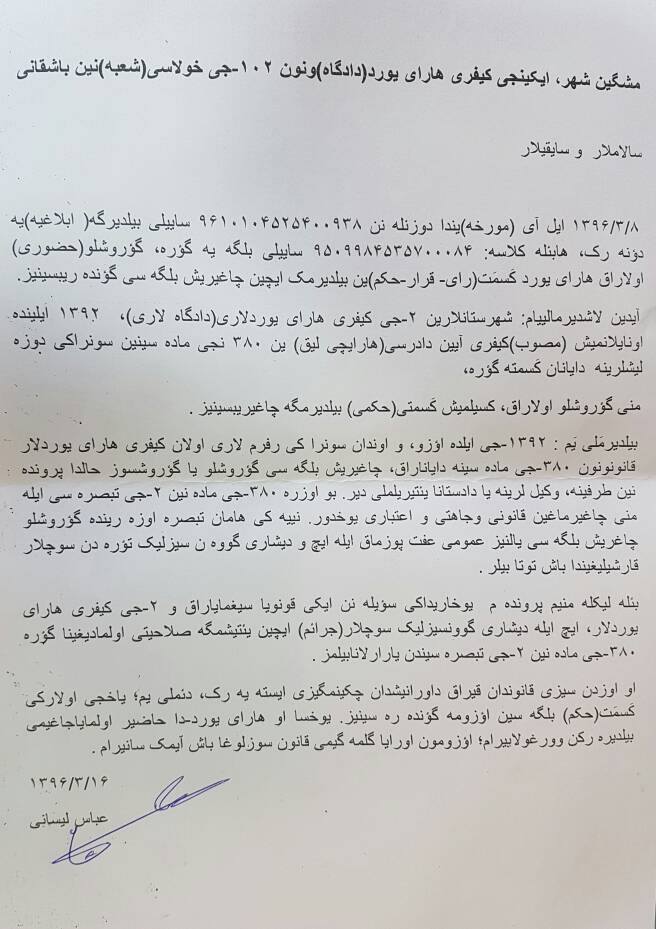 مشگین شهر، ایکینجی کیفری هارای یورد(دادگاه)ونون ۱۰۲-جی خولاسی(شعبه)نین باشقانی
سالاملار و سایقیلار
۱۳۹۶/۳/۸ ایل آی (مورخه)یندا دوزنله نن ۹۶۱۰۱۰۴۵۲۵۴۰۰۹۳۸ ساییلی بیلدیرگه( ابلاغیه)یه
دؤنه رک، هابئله کلاسه: ۹۵۰۹۹۸۴۵۳۵۷۰۰۰۸۴ ساییلی بلگه یه گؤره، گؤروشلو(حضوری)
اولاراق هارای یورد کَسمَت(رای- قرار-حکم)ین بیلدیرمک ایچین چاغیریش بلگه سی گؤنده ریبسینیز.
آیدین لاشدیرمالییام: شهرستانلارین ۲-جی کیفری هارای یوردلاری(دادگاه لاری)، ۱۳۹۲ ایلینده
اونایلانمیش (مصوب)کیفری آیین دادرسی(هارایچی لیق) ین ۳۸۰ نجی ماده سینین سونراکی دوزه
لیشلرینه دایانان کَسمته گؤره،
منی گؤروشلو اولاراق، کسیلمیش کَسمتی(حکمی) بیلدیرمگه چاغیریبسینیز .
بیلدیرمَلی یَم : ۱۳۹۲-جی ایلده اؤزو، و اوندان سونرا کی رفرم لاری اولان کیفری هارای یوردلار
قانونونون ۳۸۰-جی ماده سینه دایاناراق، چاغیریش بلگه سی گؤروشلو یا گؤروشسوز حالدا پرونده
نین طرفینه، وکیل لرینه یا دادستانا یئتیریلملی دیر. بو اوزره ۳۸۰-جی ماده نین ۲-جی تبصره سی ایله
منی چاغیرماغین قانونی وجاهتی و اعتباری یوخدور. نییه کی هامان تبصره اوزه رینده گؤروشلو
چاغریش بلگه سی یالنیز عمومی عفت پوزماق ایله ایچ و دیشاری گووه ن سیزلیک تؤره دن سوچلار
قارشیلیغیندا باش توتا بیلر .
بئله لیکله منیم پرونده م یوخاریداکی سؤیله نن ایکی قونویا سیغمایاراق و ۲-جی کیفری هارای
یوردلار، ایچ ایله دیشاری گوونسیزلیک سوچلار(جرائم) ایچین یئتیشمگه صلاحیتی اولمادیغینا گؤره
۳۸۰-جی ماده نین ۲-جی تبصره سیندن یارارلانابیلمز .
او اوزدن سیزی قانوندان قیراق داورانیشدان چکینمگیزی ایسته یه رک، دئملی یم؛ یاخجی اولارکی
کَسمَت(حکم) بلگه سین اؤزومه گؤنده ره سینیز. یوخسا او هارای یورد-دا حاضیر اولمایاجاغیمی
بیلدیره رکن وورغولابیرام؛ اؤزومون اورایا گلمه گیمی قانون سوزلوغا باش آیمک سانیرام .
۱۳۹۶/۳/۱۶
عباس لیسانی